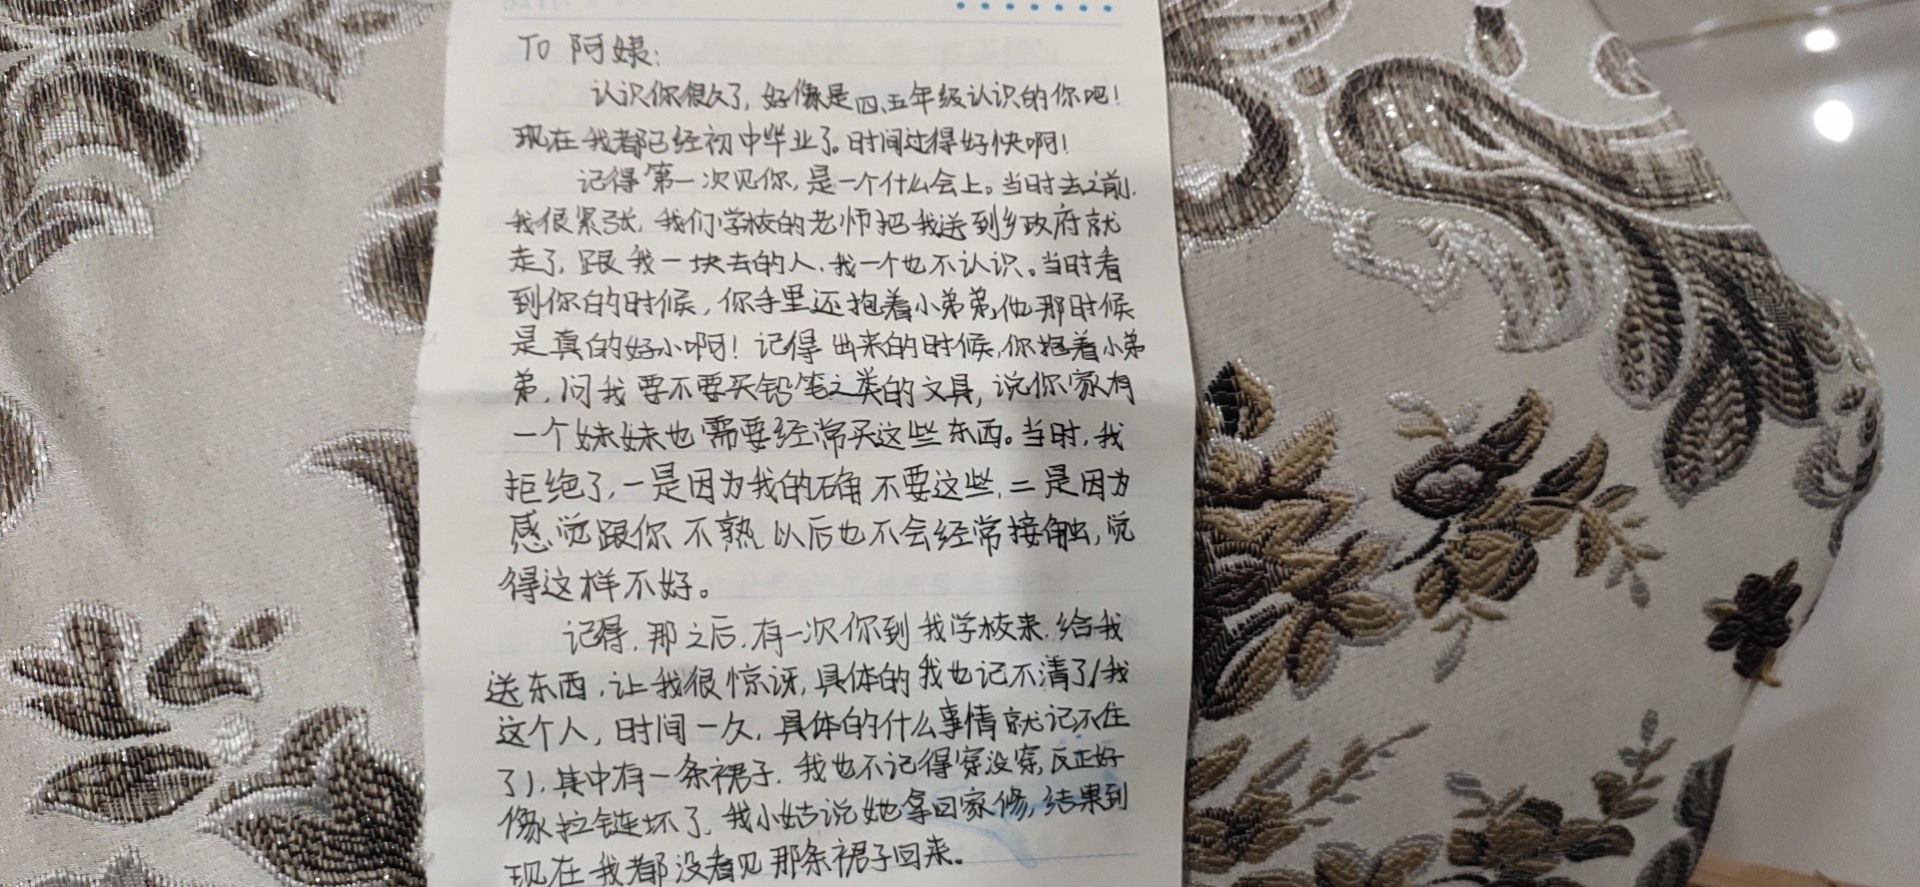 TO 阿姨：
认识你很久了，好像是四、五年级认识的你吧！
现在我都已经初中毕业了。时间过得好快啊！
记得第一次见你，是一个什么会上。当时去之前，
我很紧张，我们学校的老师把我送到乡政府就
走了，跟我一块去的人，我一个也不认识。当时看
到你的时候，你手里还抱着小弟弟，他那时候
是真的好小啊！记得出来的时候，你抱着小弟
弟，问我要不要买铅笔之类的文具，说你家有
一个妹妹也需要经常买这些东西。当时，我
拒绝了，一是因为我的确不要这些，二是因为
感觉跟你不熟以后也不会经常接触，觉
得这样不好。
记得，那之后，有一次你到我学校来，给我
送东西，让我很惊讶，具体的我也记不清了（我
这个人，时间一久，具体的什么事情就记不住
了），其中有一条裙子，我也不记得穿没穿，反正好
像拉链坏了，我小姑说她拿回家修，结果到
现在我都没看见那条裙子回来。